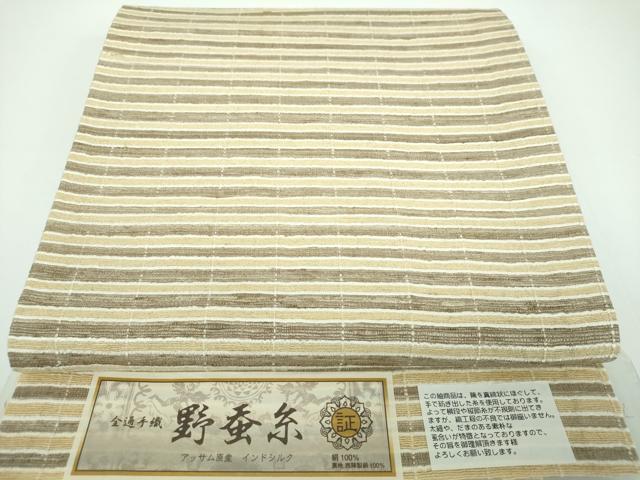 全通手織 野蚕糸 証
アッサム原産 インドシルク
絹100%
裏地:西陣製絹100%
この紬商品は、繭を真綿状にほぐして、
手で紡ぎ出した糸を使用しております。
よって横段や縦節糸が不規則に出てき
ますが、織工程の不良では御座いません。
太細や、だまのある素朴な
風合いが特徴となっておりますので、
その旨を御理解頂きます様
よろしくお願い致します。